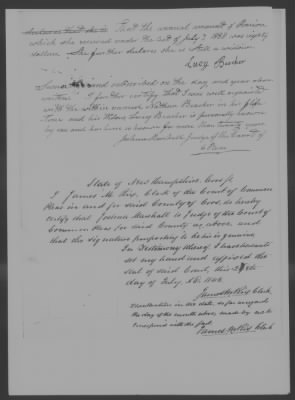 declares that she is That the annual amount of Pension
which she received under the act of July 7. 1838 was eighty
dollars. She further declares she is still a widow
Lucy Barker
Sworn and subscribed on the day and year above
written I further certify that I was well acquainted
with the within named Nathan Barker in his life
time and his Widow Lucy Barker is personally known
by me and has been so known for more than twenty years
Joshua Marshall Judge of the Court of
C Pleas
State of New Hampshire, Coos ss.
I James M. Rix, Clerk of the Court of Common
Pleas in and for said County of Coos, do hereby
certify that Joshua Marshall is Judge of the Court of
Common Pleas for said County as above, and
that the signature purporting to be his is genuine
In Testimony whereof I have hereunto
set my hand and affixed the
seal of said Court, this
day of July, AD. 1843
James M Rix Clerk
in the date, so far as regards
the day of the month above, made by me to
correspond with the fact.
James M Rix Clerk